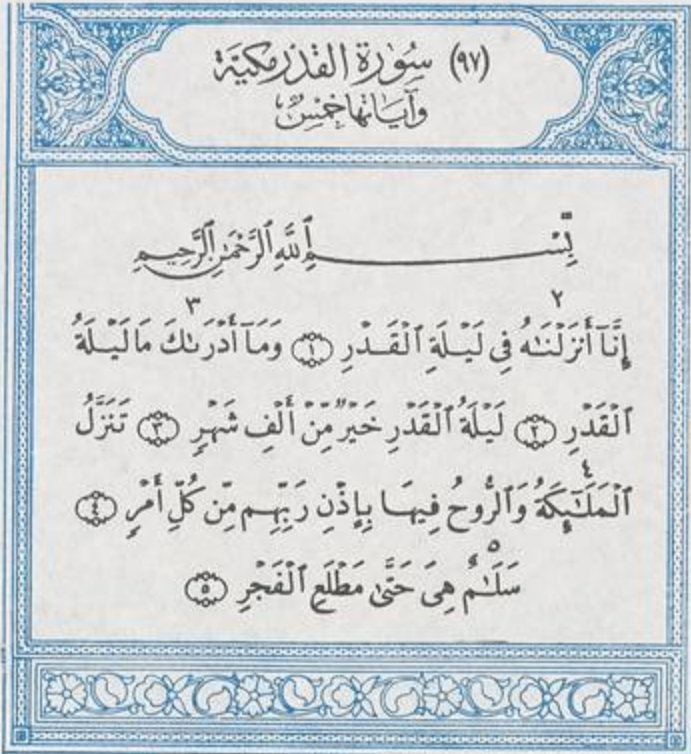 (٩٧) سُورَة القَدْرِ مَكيَّة
وَآيَاتُهَا خَمْسٌ
بِّسْمِ ٱللَّهِ ٱلرَّحْمَٰنِ ٱلرَّحِيمِ
٢ ٣
إِنَّآ أَنزَلْنَٰهُ فِى لَيْلَةِ ٱلْقَدْرِ ١ وَمَآ أَدْرَىٰكَ مَا لَيْلَةُ
ٱلْقَدْرِ ٢ لَيْلَةُ ٱلْقَدْرِ خَيْرٌ مِّنْ أَلْفِ شَهْرٍ ٣ تَنَزَّلُ
٤
ٱلْمَلَٰٓئِكَةُ وَٱلرُّوحُ فِيهَا بِإِذْنِ رَبِّهِم مِّن كُلِّ أَمْرٍ ٤
٥
سَلَٰمٌ هِىَ حَتَّىٰ مَطْلَعِ ٱلْفَجْرِ ٥